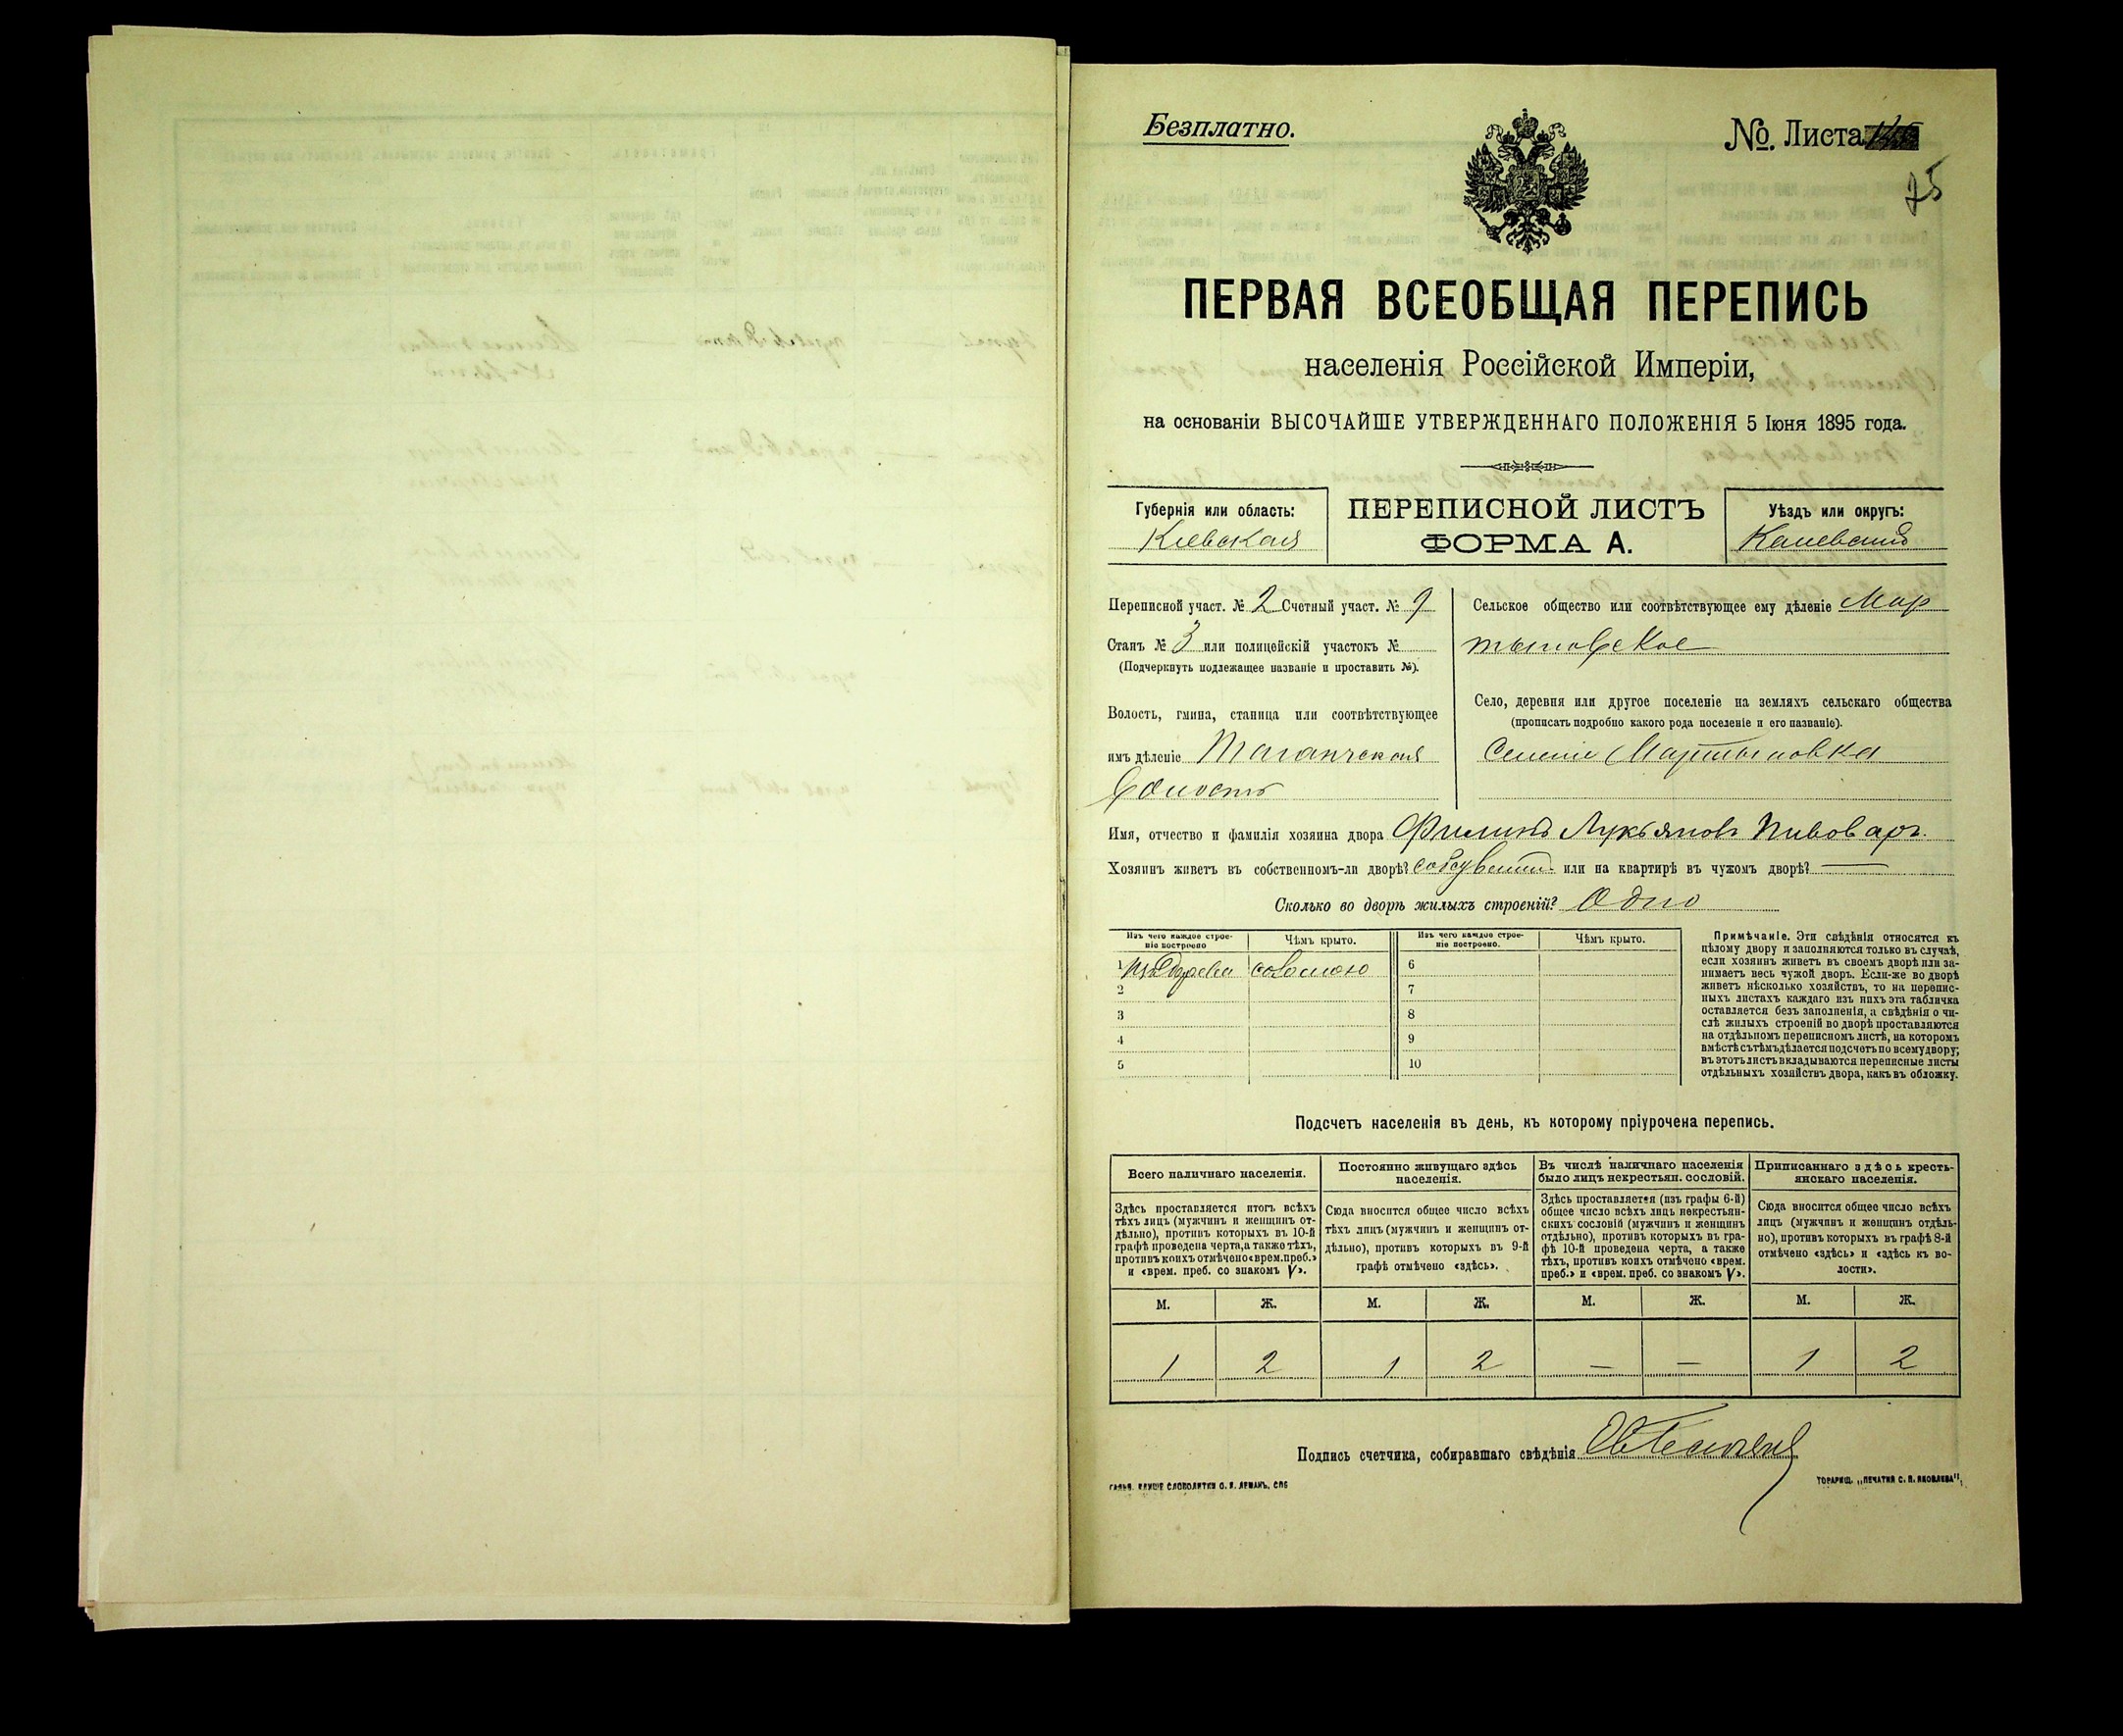 Безплатно.
№. Листа
75
ПЕРВАЯ ВСЕОБЩАЯ ПЕРЕПИСЬ
населенія Россійской Имперіи,
на основаніи ВЫСОЧАЙШЕ УТВЕРЖДЕННАГО ПОЛОЖЕНІЯ 5 Іюня 1895 года.
Губернія или область:
Кіевская
ПЕРЕПИСНОЙ ЛИСТЪ
ФОРМА А.
Уѣздъ или округъ:
Каневскій
Переписной участ. № 2 Счетный участ. № 9
Станъ № 3 или полицейскій участокъ №
(Подчеркнуть подлежащее названіе и проставить №).
Волость, гмина, станица или соотвѣтствующее
имъ дѣленіе Таганчская
волость
Сельское общество или соотвѣтствующее ему дѣленіе Мар
тыновское
Село, деревня или другое поселеніе на земляхъ сельскаго общества
(прописать подробно какого рода поселеніе и его названіе).
Селеніе Мартыновка
Имя, отчество и фамилія хозяина двора Филипъ Лукьяновъ Пивоваръ.
Хозяинъ живетъ въ собственномъ-ли дворѣ? или на квартирѣ въ чужомъ дворѣ? —
Сколько во дворѣ жилыхъ строеній? Одно
Изъ чего каждое строе-
ніе построено
Чѣмъ крыто.
Изъ чего каждое строе-
ніе построено.
Чѣмъ крыто.
1 изъ дерева соломою 6
2 7
3 8
4 9
5 10
Примѣчаніе. Эти свѣдѣнія относятся къ
цѣлому двору и заполняются только въ случаѣ,
если хозяинъ живетъ въ своемъ дворѣ или за-
нимаетъ весь чужой дворъ. Если-же во дворѣ
живетъ нѣсколько хозяйствъ, то на перепис-
ныхъ листахъ каждаго изъ нихъ эта табличка
оставляется безъ заполненія, а свѣдѣнія о чи-
слѣ жилыхъ строеній во дворѣ проставляются
на отдѣльномъ переписномъ листѣ, на которомъ
вмѣстѣ съ тѣмъ дѣлается подсчетъ по всему двору;
въ этотъ листъ вкладываются переписные листы
отдѣльныхъ хозяйствъ двора, какъ въ обложку.
Подсчетъ населенія въ день, къ которому пріурочена перепись.
Всего наличнаго населенія.
Здѣсь проставляется итогъ всѣхъ
тѣхъ лицъ (мужчинъ и женщинъ от-
дѣльно), противъ которыхъ въ 10-й
графѣ проведена черта, а также тѣхъ,
противъ коихъ отмѣчено «врем. преб.»
и «врем. преб. со знакомъ V».
Постоянно живущаго здѣсь
населенія.
Сюда вносится общее число всѣхъ
тѣхъ лицъ (мужчинъ и женщинъ от-
дѣльно), противъ которыхъ въ 9-й
графѣ отмѣчено «здѣсь».
Въ числѣ наличнаго населенія
было лицъ некрестьян. сословій.
Здѣсь проставляется (изъ графы 6-й)
общее число всѣхъ лицъ некрестьян-
скихъ сословій (мужчинъ и женщинъ
отдѣльно), противъ которыхъ въ гра-
фѣ 10-й проведена черта, а также
тѣхъ, противъ коихъ отмѣчено «врем.
преб.» и «врем. преб. со знакомъ V».
Приписаннаго здѣсь кресть-
янскаго населенія.
Сюда вносится общее число всѣхъ
лицъ (мужчинъ и женщинъ отдѣль-
но), противъ которыхъ въ графѣ 8-й
отмѣчено «здѣсь» и «здѣсь къ во-
лости».
М. Ж. М. Ж. М. Ж. М. Ж.
1 2 1 2 — — 1 2
Подпись счетчика, собиравшаго свѣдѣнія
ТОВАРИЩ. „ПЕЧАТНЯ С. П. ЯКОВЛЕВА“,